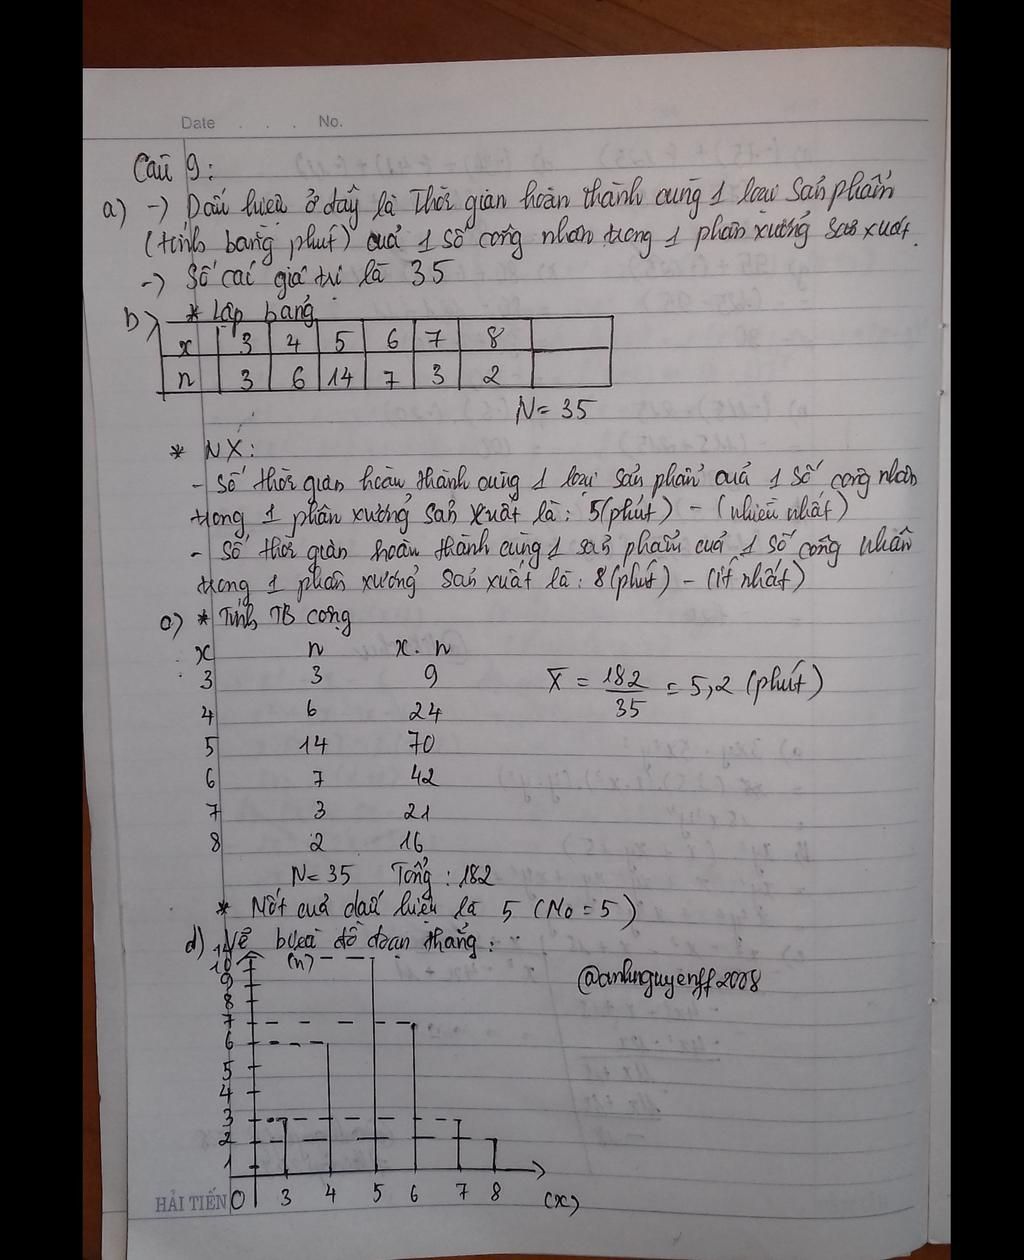 Date . . . No.
Câu 9:
a) -) Dấu hiệu ở đây là Thời gian hoàn thành cùng 1 loại sản phẩm
(tính bằng phút) của 1 số công nhân trong 1 phân xưởng sản xuất.
-) Số các giá trị là 35
b) * Lập bảng
x 3 4 5 6 7 8
n 3 6 14 7 3 2
N= 35
* NX:
- Số thời gian hoàn thành cùng 1 loại sản phẩm của 1 số công nhân
trong 1 phân xưởng sản xuất là: 5(phút) - (nhiều nhất)
- Số thời gian hoàn thành cùng 1 sản phẩm của 1 số công nhân
trong 1 phân xưởng sản xuất là: 8(phút) - (ít nhất)
c) * Tính TB cộng
x n x. n
3 3 9 X̄ = 182/35 = 5,2 (phút)
4 6 24
5 14 70
6 7 42
7 3 21
8 2 16
N= 35 Tổng: 182
* Mốt của dấu hiệu là 5 (Mo = 5)
d) Vẽ biểu đồ đoạn thẳng:
14
10 (n)
9 @anhnguyenff2008
8
7
6
5
4
3
2
1
HẢI TIẾN O 3 4 5 6 7 8 (x)